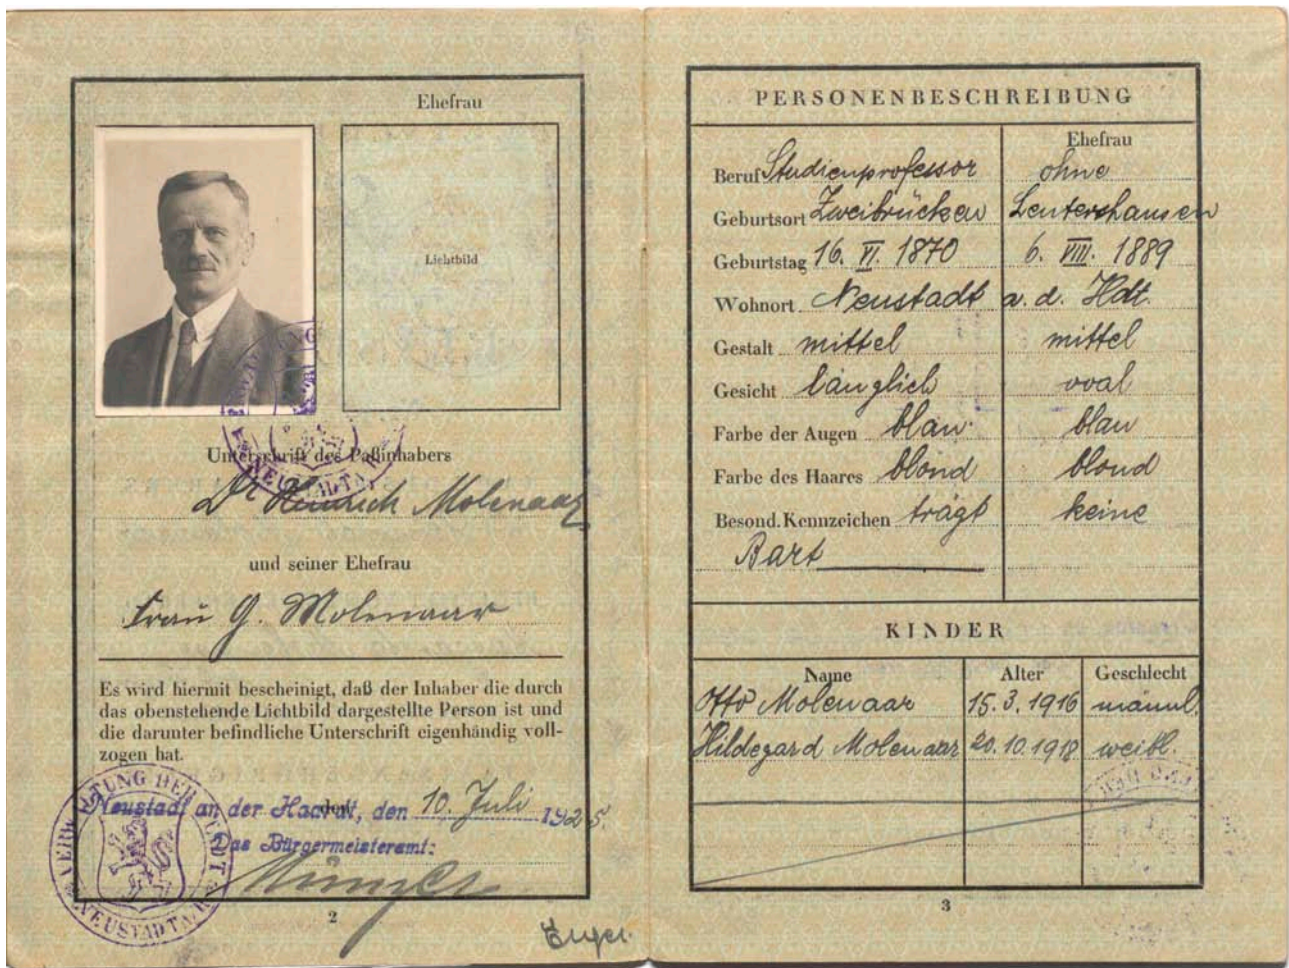 Ehefrau
Lichtbild
Unterschrift des Paßinhabers
Dr Heinrich Molenaar
und seiner Ehefrau
Frau G. Molenaar
Es wird hiermit bescheinigt, daß der Inhaber die durch
das obenstehende Lichtbild dargestellte Person ist und
die darunter befindliche Unterschrift eigenhändig voll-
zogen hat.
Neustadt an der Haardt, den 10. Juli 1925.
Das Bürgermeisteramt:
VERWALTUNG DER STADT
NEUSTADT A.
2
PERSONENBESCHREIBUNG
Ehefrau
Beruf Studienprofessor ohne
Geburtsort Zweibrücken Leutershausen
Geburtstag 16. VI. 1870 6. VIII. 1889
Wohnort Neustadt a. d. Hdt.
Gestalt mittel mittel
Gesicht länglich oval
Farbe der Augen blau blau
Farbe des Haares blond blond
Besond. Kennzeichen trägt keine
Bart
KINDER
Name Alter Geschlecht
Otto Molenaar 15.3.1916 männl.
Hildegard Molenaar 20.10.1918 weibl.
3